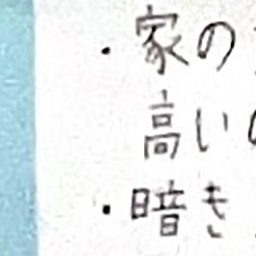 ・家の
高い
・暗き